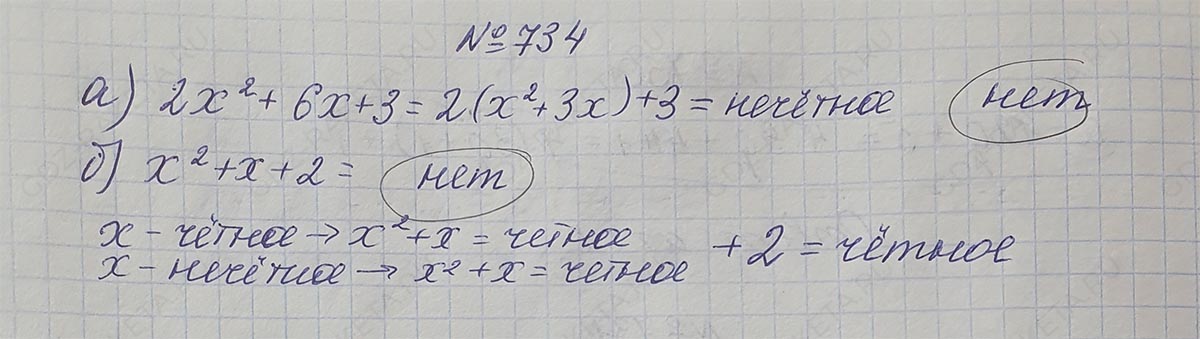 №734
а) 2x² + 6x + 3 = 2(x² + 3x) + 3 = нечётное нет
б) x² + x + 2 = нет
x - чётное → x² + x = четное
x - нечётное → x² + x = четное
+ 2 = чётное